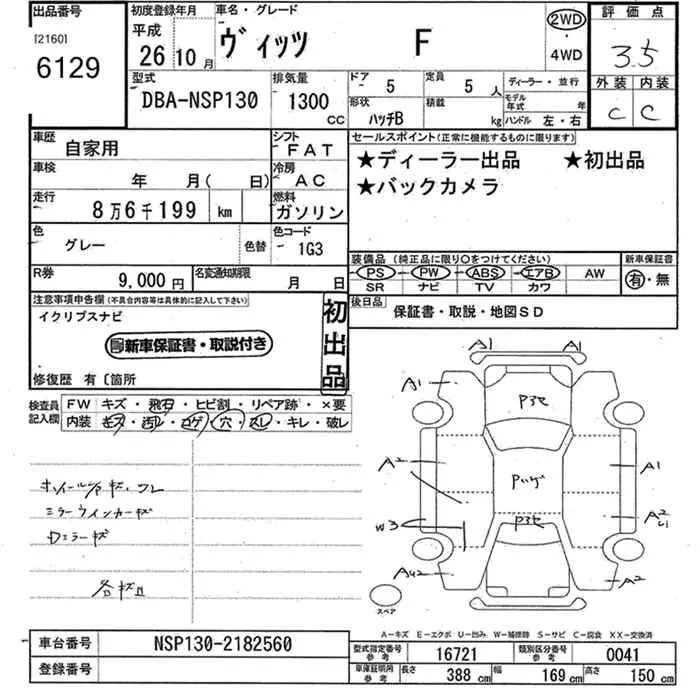 出品番号
[2160]
6129
初度登録年月
平成
26 10 月
車名・グレード
ヴィッツ F
2WD
・
4WD
評価点
3.5
外装 内装
C C
型式
DBA-NSP130
排気量
1300 CC
ドア 5
定員 5 人
形状 ハッチB
積載 kg
ディーラー・並行
モデル年式 年
ハンドル 左・右
車歴 自家用
シフト FAT
車検 年 月( 日)
冷房 AC
走行 8万6千199 km
燃料 ガソリン
色 グレー 色替
色コード 1G3
R券 9,000円
名変通知期限 月 日
セールスポイント(正常に機能するものに限ります)
★ディーラー出品 ★初出品
★バックカメラ
装備品 (純正品に限り○をつけてください)
PS PW ABS エアB AW
SR ナビ TV カワ
新車保証書
有・無
後日品 保証書・取説・地図SD
注意事項申告欄(不具合内容等は具体的に記入して下さい)
イクリプスナビ
新車保証書・取説付き
初出品
修復歴 有〔箇所
検査員記入欄
FW キズ・飛石・ヒビ割・リペア跡・×要
内装 キズ・汚れ・コゲ・穴・スレ・キレ・破レ
ミラーウインカーキズ
各キズ凹
A1 A1
A1
A2
A1
W3
A2
AU2
A2
スペア
A-キズ E-エクボ U-凹み W-補修跡 S-サビ C-腐食 XX-交換済
車台番号 NSP130-2182560
登録番号
型式指定番号 参考 16721
類別区分番号 参考 0041
車庫証明用 参考 長さ 388 cm 幅 169 cm 高さ 150 cm